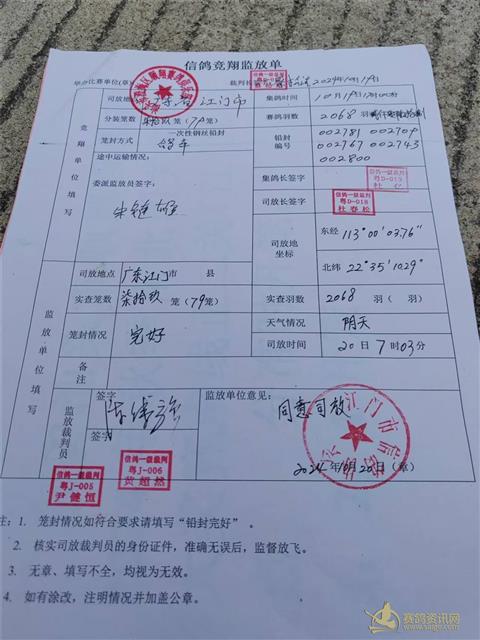 信鸽竞翔监放单
举办比赛单位(章)
裁判长 2024年10月19日
竞翔单位填写
司放地 江门市
集鸽时间 10月19日
分装笼数 笼(79)
赛鸽羽数 2068羽
笼封方式 一次性钢丝铅封
铅封编号 002781 002709
002767 002743
002800
途中运输情况:
委派监放员签字:
集鸽长签字
信鸽一级裁判
粤D-019
司放长签字
信鸽一级裁判
粤D-018
杜春松
司放地坐标
东经 113°00'03.76"
北纬 22°35'10.29"
监放单位填写
司放地点 广东江门市 县
实查笼数 柒拾玖 笼(79笼)
实查羽数 2068 羽(羽)
笼封情况 完好
天气情况 阴天
司放时间 20日7时03分
备注
监放裁判员
签字
签字
监放单位意见:
同意司放
江门市信鸽
2024年10月20日(章)
信鸽一级裁判
粤J-005
尹健恒
信鸽一级裁判
粤J-006
黄超然
注:1. 笼封情况如符合要求请填写“铅封完好”。
2. 核实司放裁判员的身份证件,准确无误后,监督放飞。
3. 无章、填写不全,均视为无效。
4. 如有涂改,注明情况并加盖公章。
赛鸽资讯网
www.saige.com